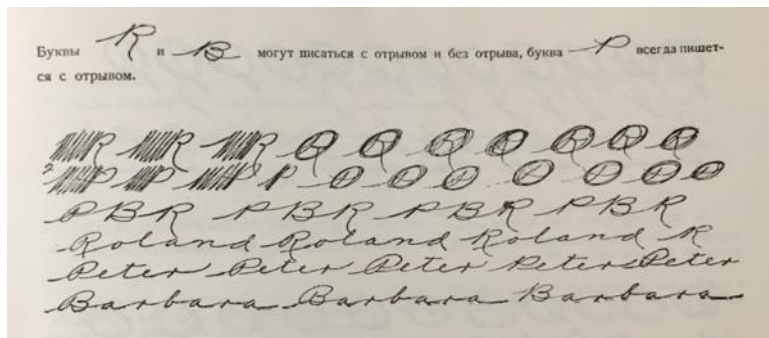 Буквы R и B могут писаться с отрывом и без отрыва, буква P всегда пишет-
ся с отрывом.
R R R R R R R R R R
2 P P P P
P B R P B R P B R P B R
Roland Roland Roland R
Peter Peter Peter Peter Peter
Barbara Barbara Barbara